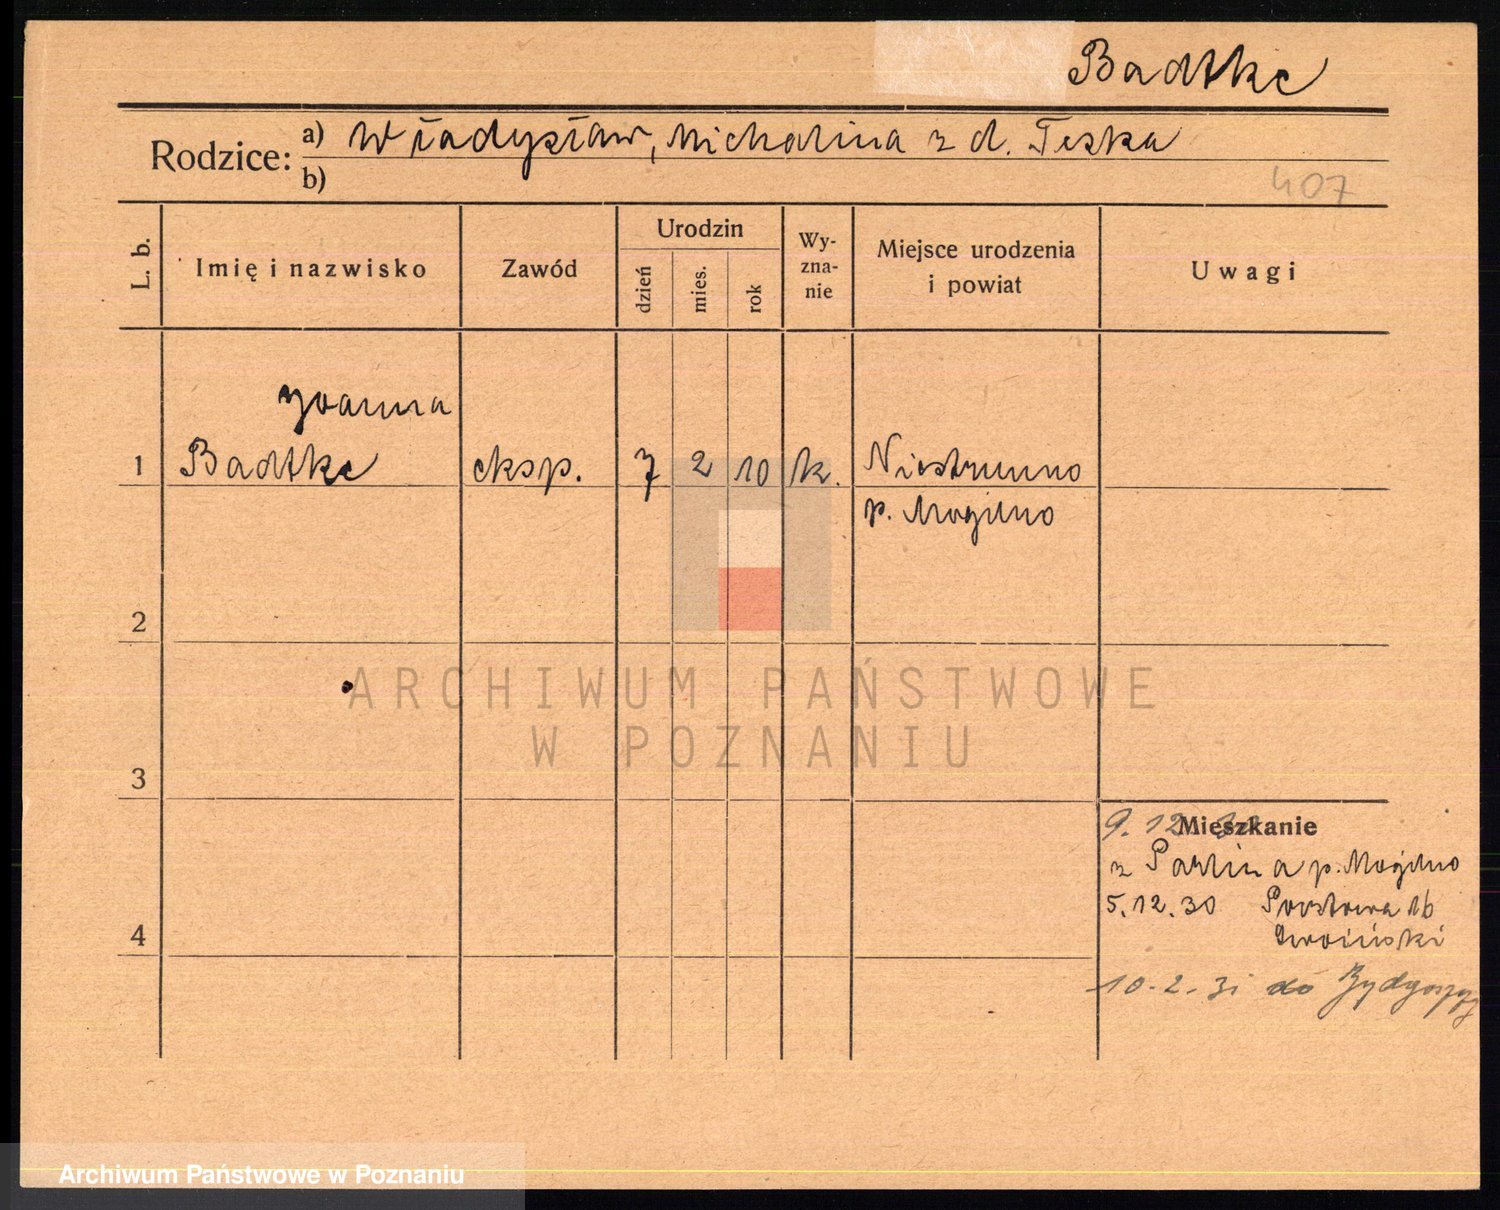 Badtke
Rodzice: a) Władysław, Michalina z d. Teska
b)
407
L. b.
Imię i nazwisko
Zawód
Urodzin
dzień
mies.
rok
Wy-
zna-
nie
Miejsce urodzenia
i powiat
Uwagi
Joanna
1 Badtke eksp. 7 2 10 k. Niestronno
p. Mogilno
2
3
4
9. 12. Mieszkanie
z Parlina p. Mogilno
5.12.30 Pocztowa 16
10.2.31 do Bydgoszczy
ARCHIWUM PAŃSTWOWE
W POZNANIU
Archiwum Państwowe w Poznaniu